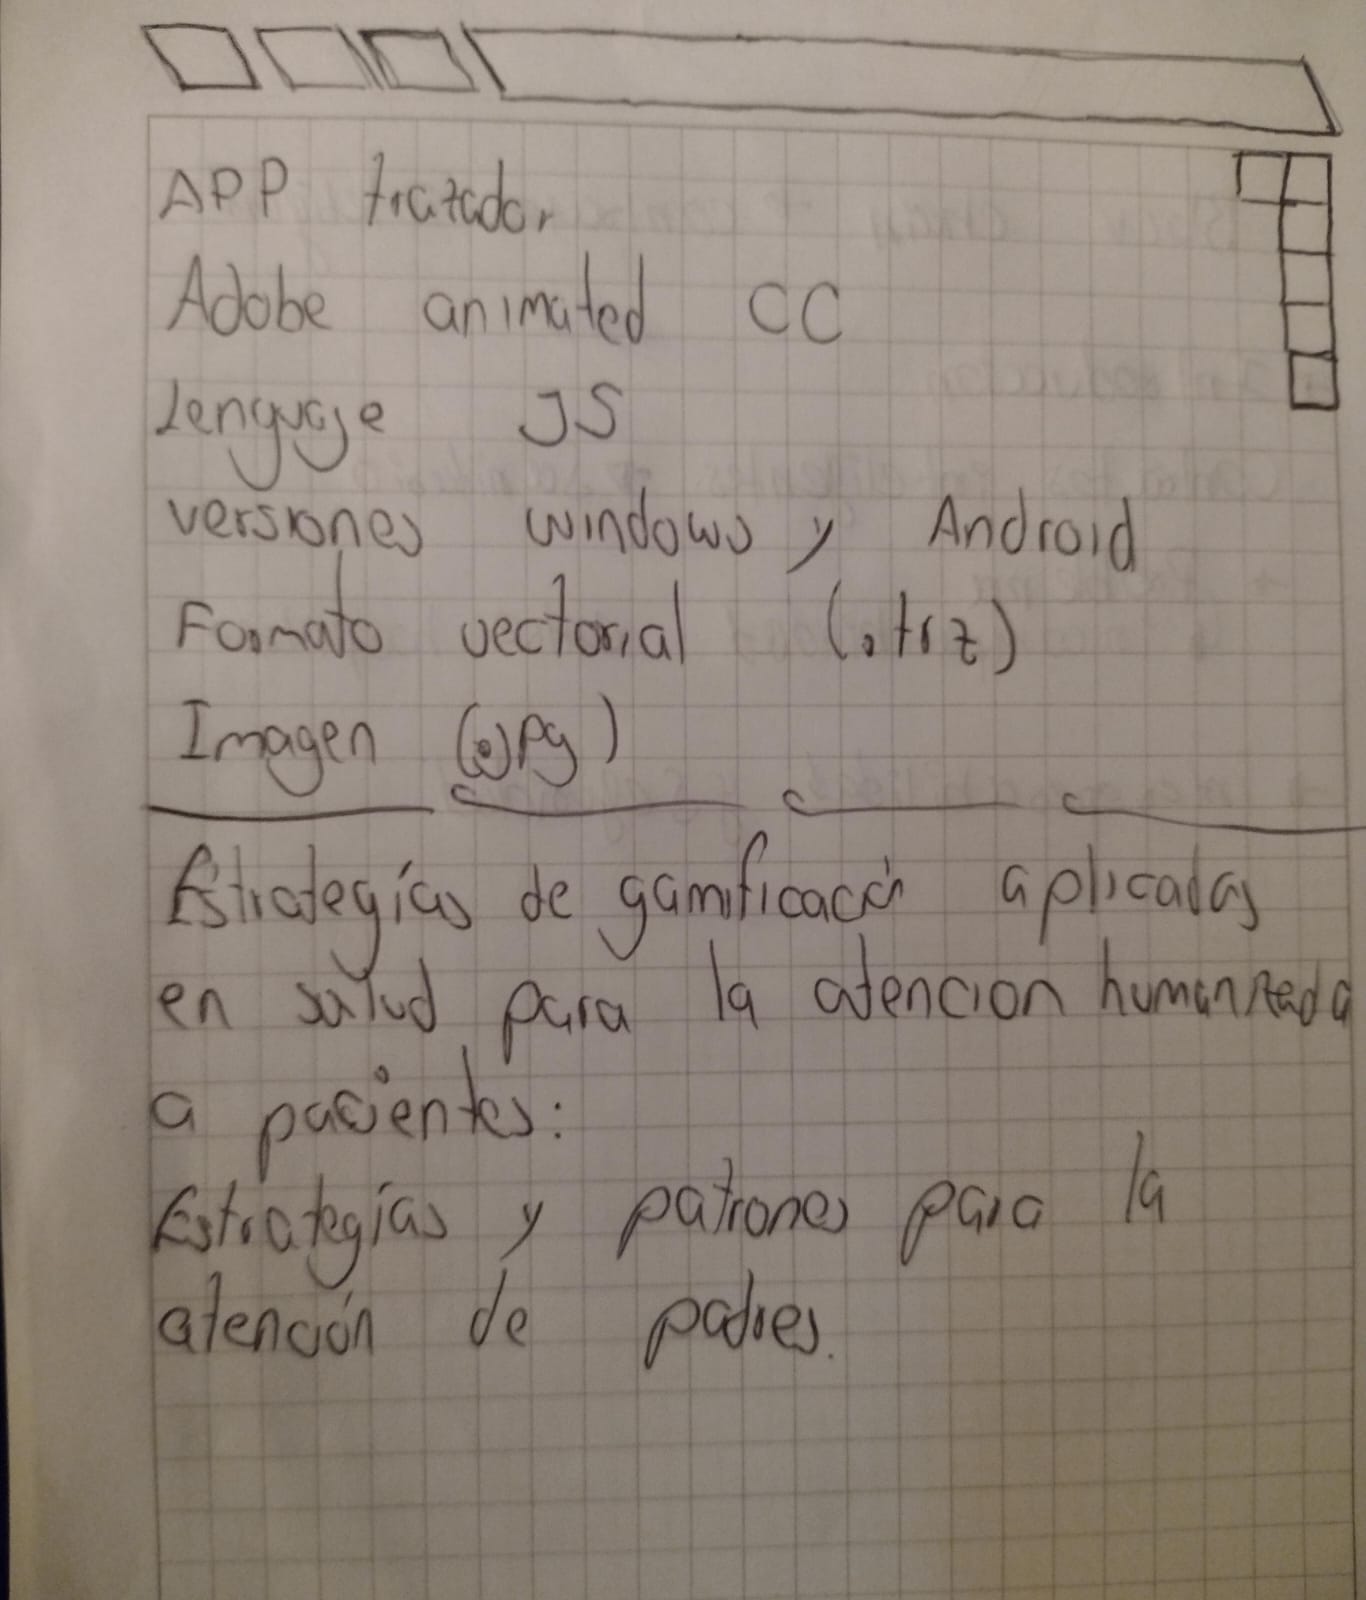 APP trazador
Adobe animated CC
Lenguaje JS
versiones windows y Android
Formato vectorial (.trz)
Imagen (.jpg)
Estrategías de gamificación aplicadas
en salud para la atencion humanizada
a pacientes:
Estrategías y patrones para la
atención de padres.